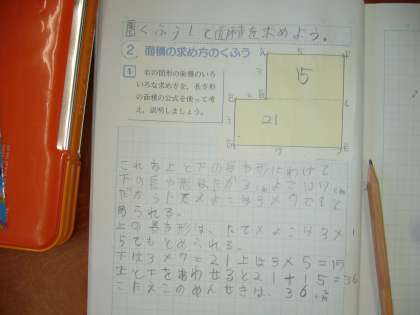 くふうして面積を求めよう。
② 面積の求め方のくふう
1 右の図形の面積のいろ
いろな求め方を、長方形
の面積の公式を使って考
え、説明しましょう。
5
3
15
3
21
7
これを上と下の長方形にわけて
下の長方形はたが3cmよこは7cm
だからたて×よこは3×7ですと
められる。
上の長方形は、たて×よこは3×
5でもとめられる。
下は3×7=21上は3×5=15
上と下をあわせると21+15=36
こたえこのめんせきは、36